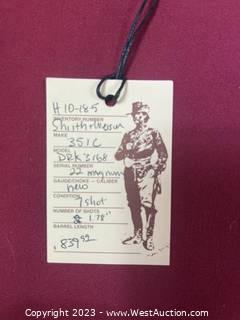 H10-185
INVENTORY NUMBER
Smith & Wesson
MAKE
351C
MODEL
DRK3168
SERIAL NUMBER
22 magnum
GAUGE/CHOKE - CALIBER
new
CONDITION
7 shot
NUMBER OF SHOTS
1.78"
BARREL LENGTH
$ 839.99
Copyright 2023 - www.WestAuction.com